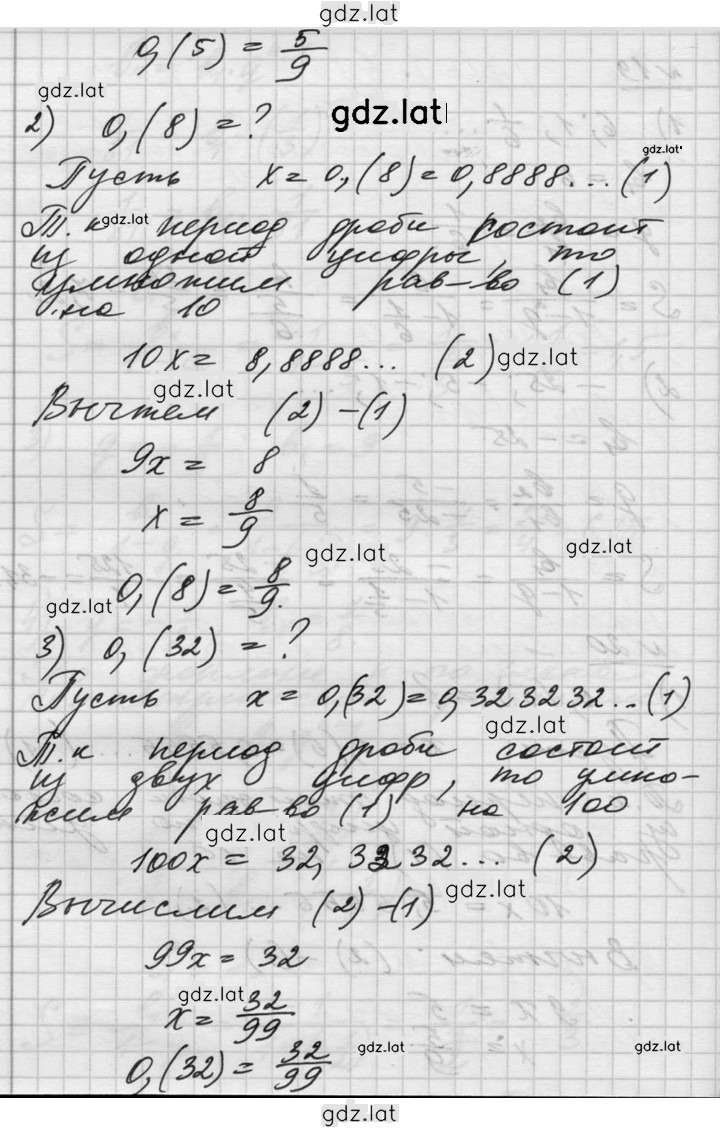 gdz.lat
0,(5) = 5/9
gdz.lat
2) 0,(8) = ?
gdz.lat
gdz.lat
Пусть x = 0,(8) = 0,8888... (1)
Т. к gdz.lat период дроби состоит
из одной цифры, то
умножим рав-во (1)
на 10
10x = 8,8888... (2) gdz.lat
gdz.lat
Вычтем (2) – (1)
9x = 8
x = 8/9
gdz.lat
gdz.lat
0,(8) = 8/9.
gdz.lat
3) 0,(32) = ?
Пусть x = 0,(32) = 0,323232... (1)
gdz.lat
Т. к период дроби состоит
из двух цифр, то умно-
жим рав-во (1) на 100
gdz.lat
100x = 32,3232... (2)
gdz.lat
Вычислим (2) – (1)
99x = 32
gdz.lat
x = 32/99
gdz.lat
gdz.lat
0,(32) = 32/99
gdz.lat